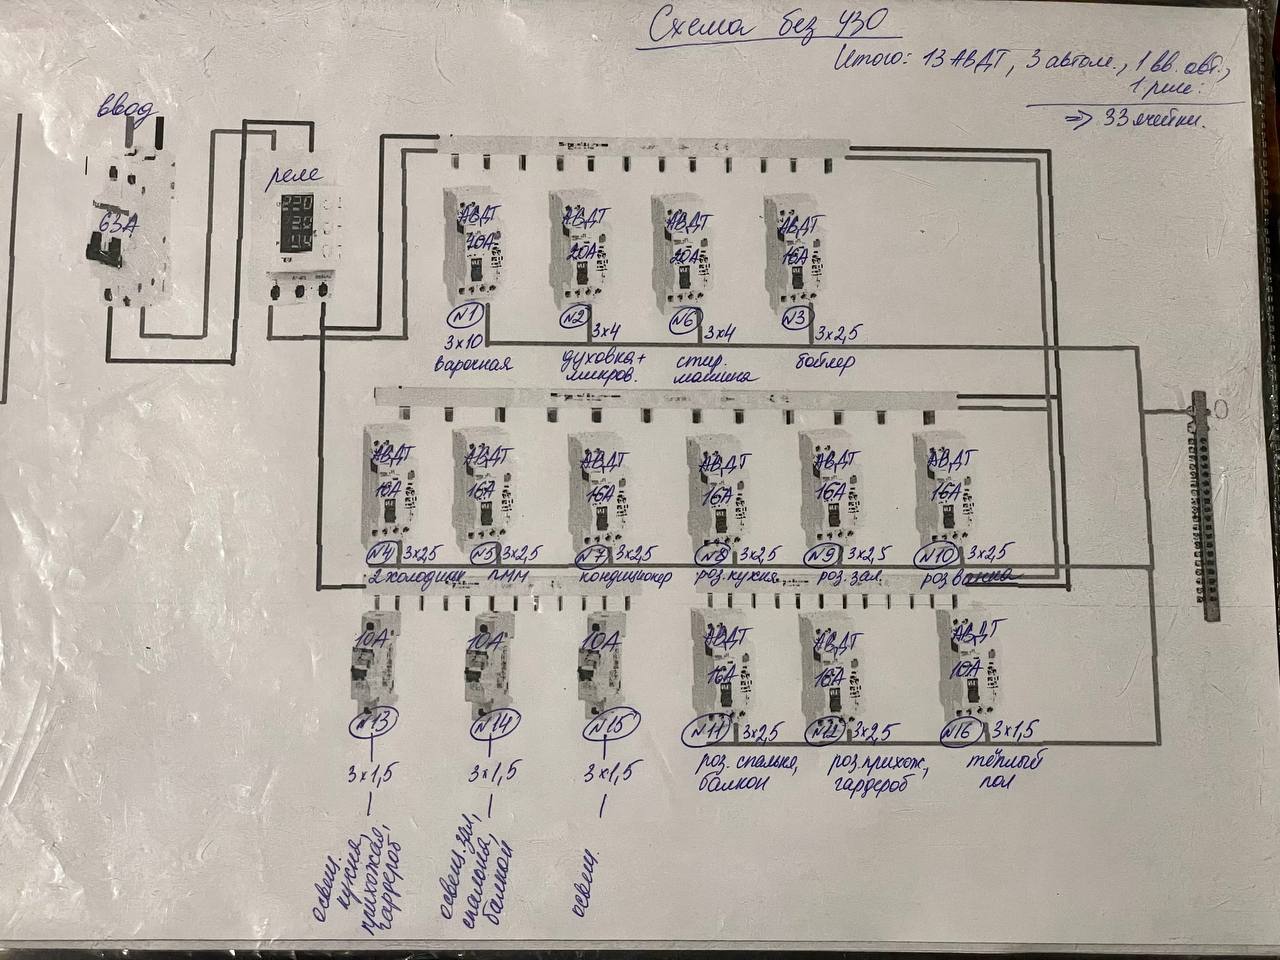 Схема без УЗО
Итого: 13 АВДТ, 3 автом., 1 вв. авт.,
1 реле:
=> 33 ячейки.
ввод
63А
реле
АВДТ
40А
АВДТ
20А
АВДТ
20А
АВДТ
16А
N1
3х10
варочная
N2
3х4
духовка +
микров.
N6
3х4
стир.
машина
N3
3х2,5
бойлер
АВДТ
16А
АВДТ
16А
АВДТ
16А
АВДТ
16А
АВДТ
16А
АВДТ
16А
N4 3х2,5
2 холодильн
N5 3х2,5
ПММ
N7 3х2,5
кондиционер
N8 3х2,5
роз. кухня
N9 3х2,5
роз. зал.
N10 3х2,5
роз ванна
10А
10А
10А
АВДТ
16А
АВДТ
16А
АВДТ
10А
N13
3х1,5
освещ.
кухня,
прихожая,
гардероб
N14
3х1,5
освещ. зал,
спальня,
балкон
N15
3х1,5
освещ.
N11 3х2,5
роз. спальня,
балкон
N12 3х2,5
роз. прихож,
гардероб
N16 3х1,5
тёплый
пол